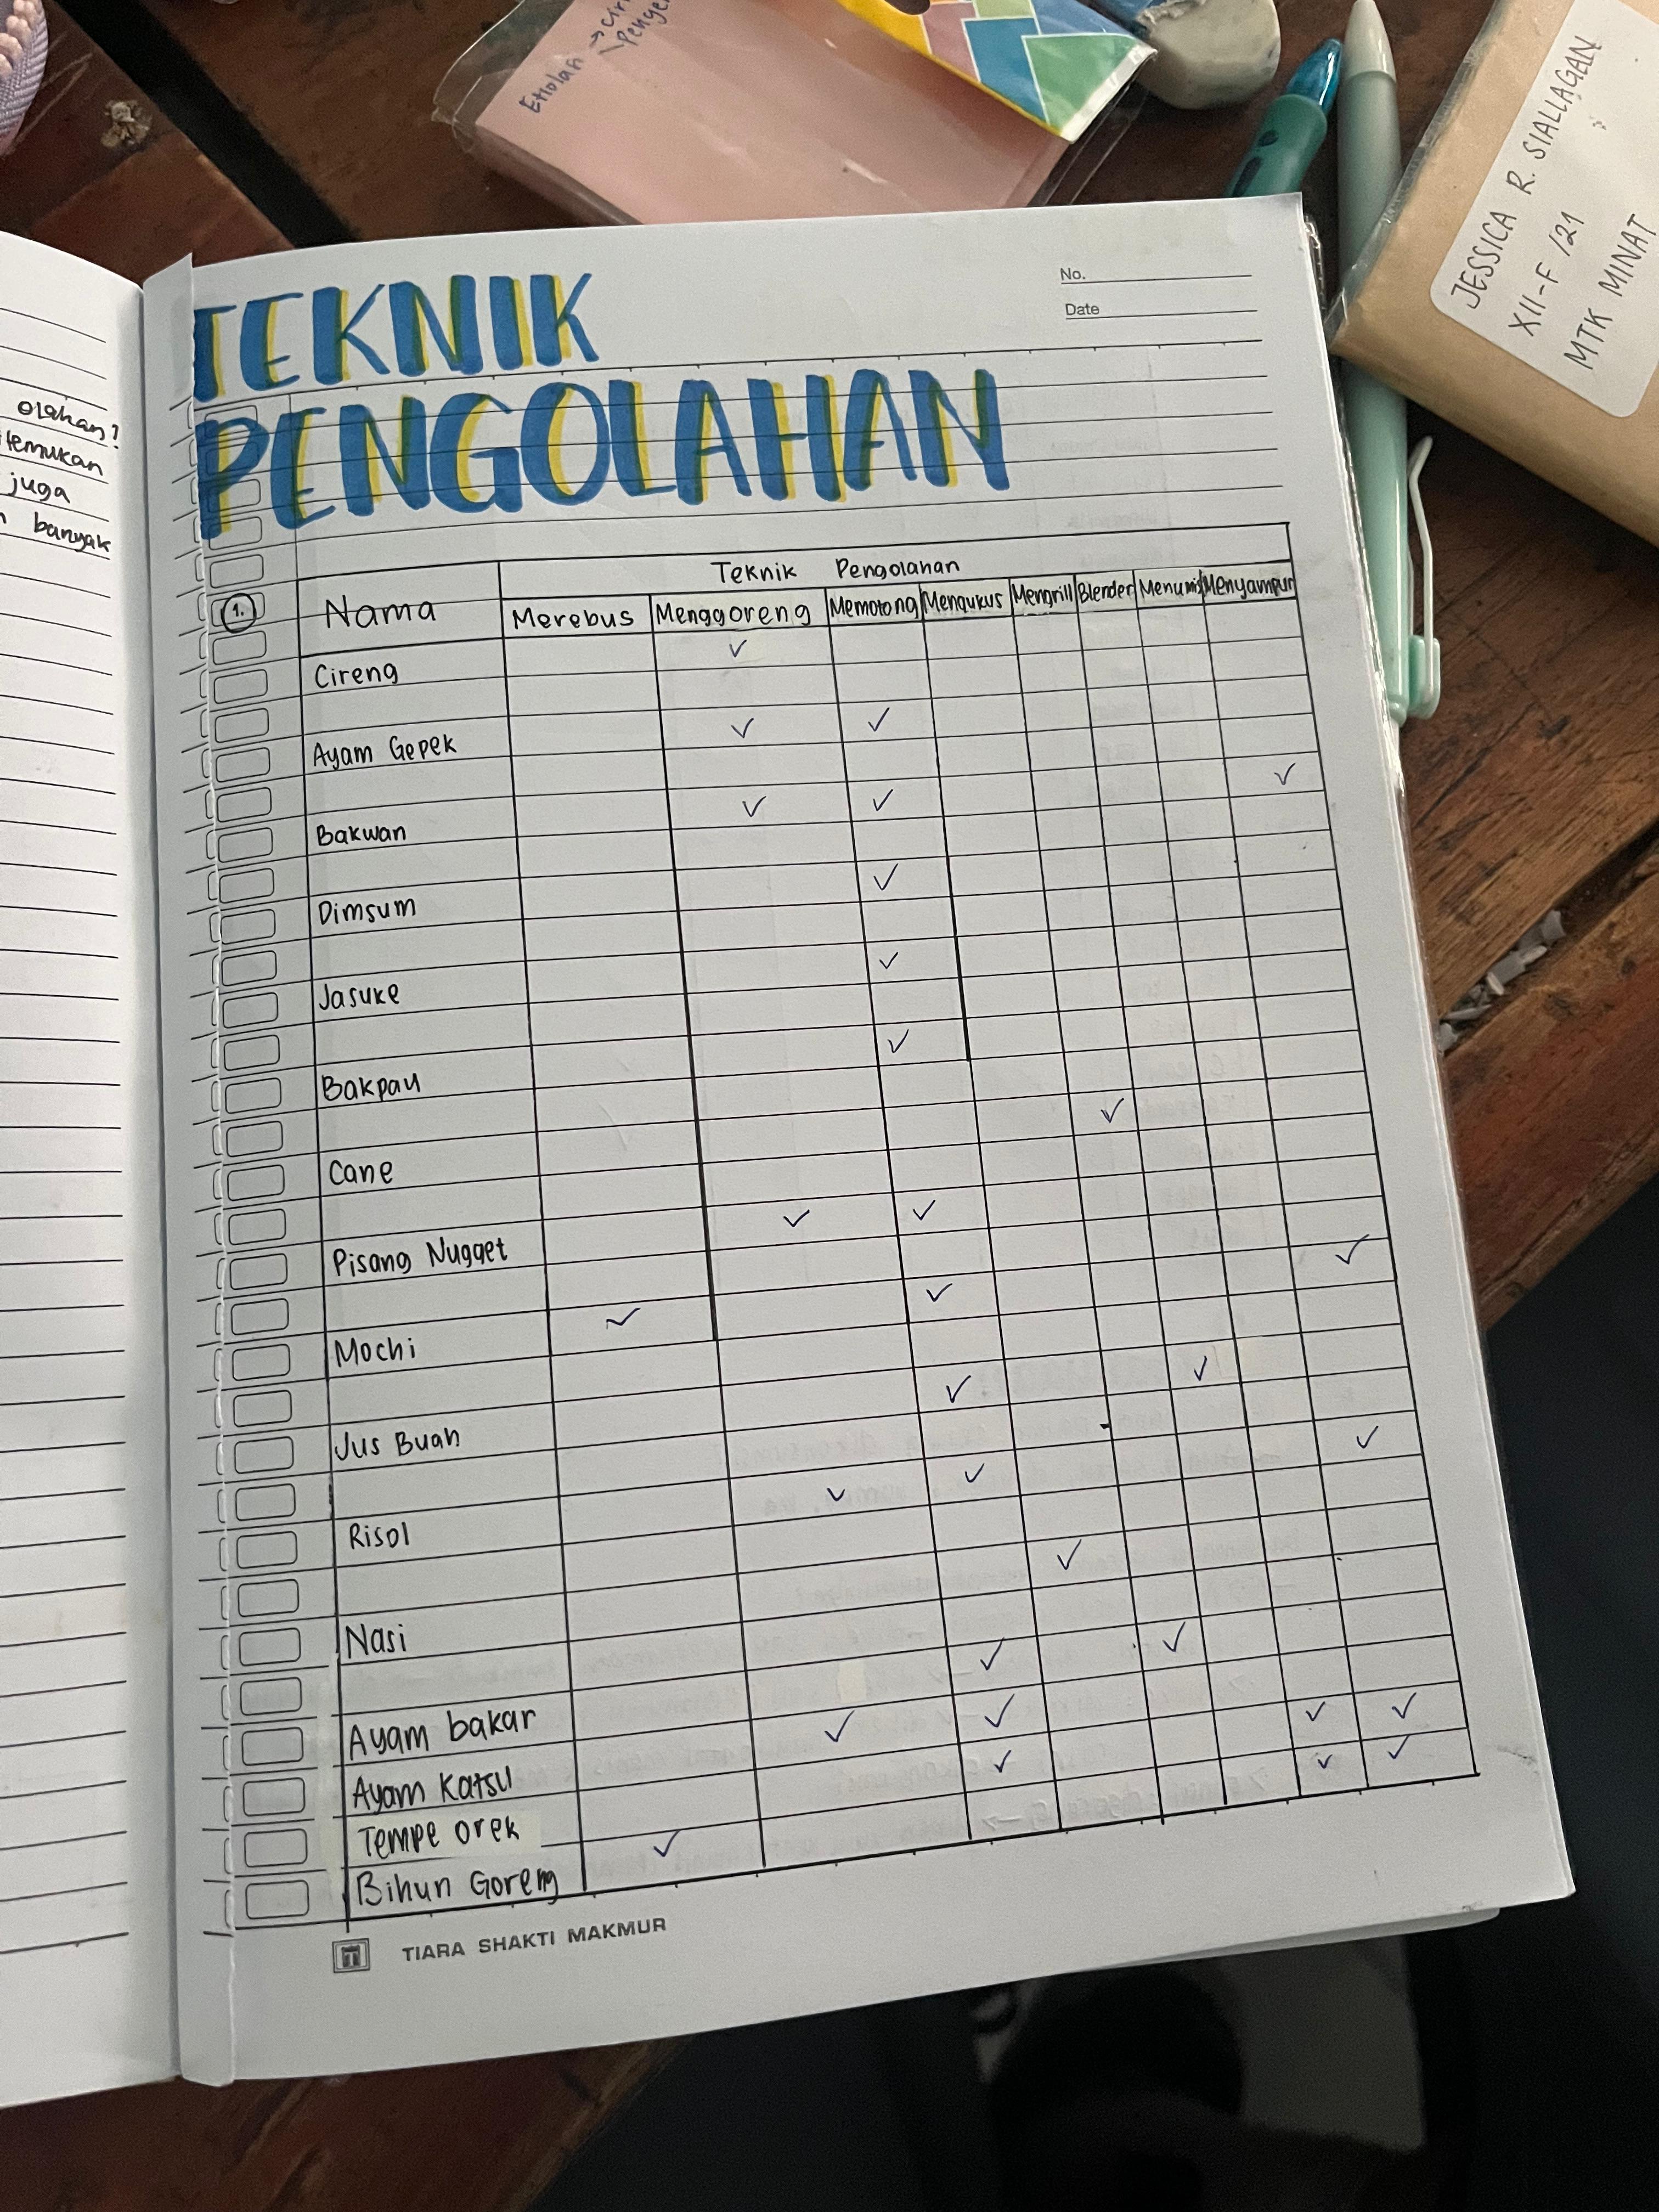 Etiolan → ciri
Penge
JESSICA R. SIALLAGAN
XII-F /21
MTK MINAT
olahan?
temukan
juga
banyak
No.
Date
TEKNIK
PENGOLAHAN
1.
Nama
Teknik Pengolahan
Merebus Menggoreng Memotong Mengukus Mengrill Blender Menumis Menyampur
Cireng ✓
Ayam Gepek ✓ ✓
Bakwan ✓ ✓ ✓
Dimsum ✓
Jasuke ✓
Bakpau ✓
Cane ✓
Pisang Nugget ✓ ✓
Mochi ✓ ✓ ✓
Jus Buah ✓ ✓
Risol ✓ ✓ ✓
Nasi ✓
Ayam bakar ✓ ✓
Ayam Katsu ✓ ✓
Tempe orek ✓ ✓ ✓
Bihun Goreng ✓ ✓ ✓
TIARA SHAKTI MAKMUR